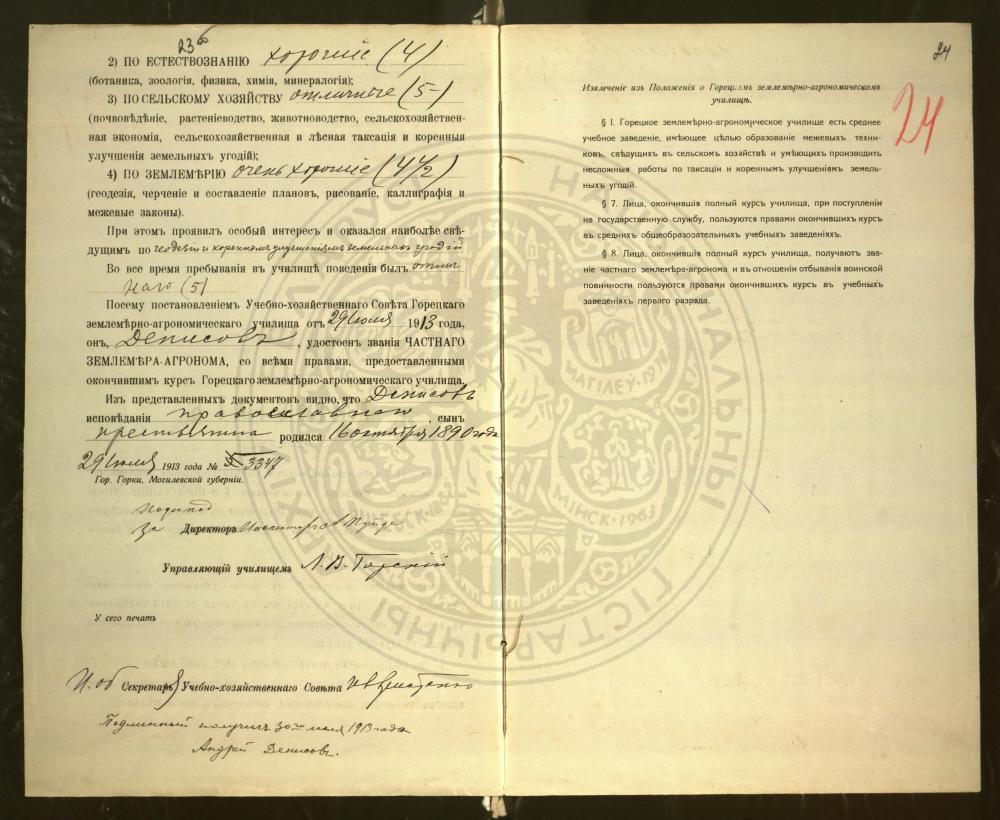 23б
2) ПО ЕСТЕСТВОЗНАНІЮ хорошіе (4)
(ботаника, зоологія, физика, химія, минералогія);
3) ПО СЕЛЬСКОМУ ХОЗЯЙСТВУ отличные (5-)
(почвовѣдѣніе, растеніеводство, животноводство, сельскохозяйствен-
ная экономія, сельскохозяйственная и лѣсная таксація и коренныя
улучшенія земельныхъ угодій);
4) ПО ЗЕМЛЕМѢРІЮ очень хорошіе (4 1/2)
(геодезія, черченіе и составленіе плановъ, рисованіе, каллиграфія и
межевые законы).
При этомъ проявилъ особый интересъ и оказался наиболѣе свѣ-
дущимъ по геодезіи и кореннымъ улучшеніямъ земельныхъ угодій
Во все время пребыванія въ училищѣ поведенія былъ отлич
наго (5)
Посему постановленіемъ Учебно-хозяйственнаго Совѣта Горецкаго
землемѣрно-агрономическаго училища отъ 29 Іюля 1913 года,
онъ, Денисовъ, удостоенъ званія ЧАСТНАГО
ЗЕМЛЕМѢРА-АГРОНОМА, со всѣми правами, предоставленными
окончившимъ курсъ Горецкаго землемѣрно-агрономическаго училища.
Изъ представленныхъ документовъ видно, что Денисовъ
исповѣданія православнаго, сынъ
крестьянина родился 16 октября 1890 года
29 Іюля 1913 года № 3347
Гор. Горки, Могилевской губерніи.
За Директоръ Инспекторъ
Управляющій училищемъ Л. В. Горскій
У сего печать
И. об Секретаря Учебно-хозяйственнаго Совѣта
Подлинный получилъ 30го іюля 1913 года
Андрей Денисовъ.
24
24
Извлеченіе изъ Положенія о Горецкомъ землемѣрно-агрономическомъ
училищѣ.
§ 1. Горецкое землемѣрно-агрономическое училище есть среднее
учебное заведеніе, имѣющее цѣлью образованіе межевыхъ техни-
ковъ, свѣдущихъ въ сельскомъ хозяйствѣ и умѣющихъ производить
несложныя работы по таксаціи и кореннымъ улучшеніямъ земель-
ныхъ угодій.
§ 7. Лица, окончившія полный курсъ училища, при поступленіи
на государственную службу, пользуются правами окончившихъ курсъ
въ среднихъ общеобразовательныхъ учебныхъ заведеніяхъ.
§ 8. Лица, окончившія полный курсъ училища, получаютъ зва-
ніе частнаго землемѣра-агронома и въ отношеніи отбыванія воинской
повинности пользуются правами окончившихъ курсъ въ учебныхъ
заведеніяхъ перваго разряда.
МАГІЛЕЎ
ВІЦЕБСК
МІНСК·1963
ГІСТАРЫЧНЫ